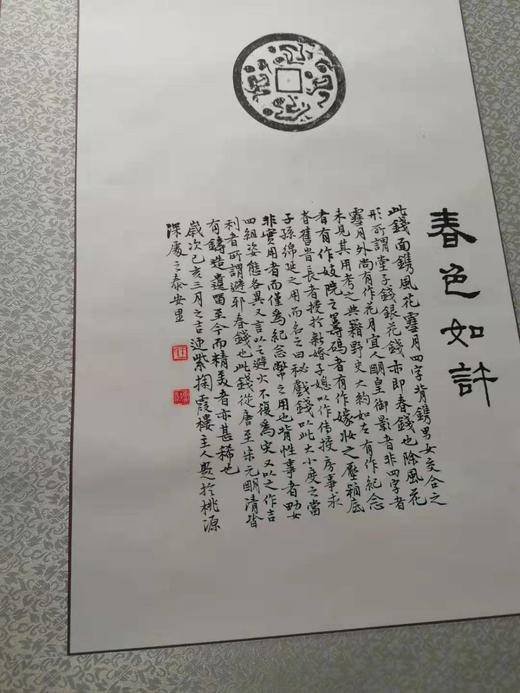 春色如許
此錢面鐫風花雪月四字背鐫男女交合之
形所謂堂子錢銀花錢亦即春錢也除風花
雪月外尚有作花月宜人明皇御影者非四字者
未見其用考之典籍野史大約如左有作紀念
者有作妓院之籌碼者有作嫁妝之壓箱底
者舊昔長者授於新婚子媳以作傳授房事求
子孫綿延之用而名之曰秘戲錢以此大小度之當
非實用者而僅為紀念幣之用也背性事者男女
四組姿態各異又言以之避火不復為史又以之作吉
利者所謂避邪春錢也此錢從唐至宋元明清皆
有鑄造遺留至今而精美者亦甚稀也
歲次己亥三月之吉迎紫掬霞樓主人題於桃源
深處之泰安里